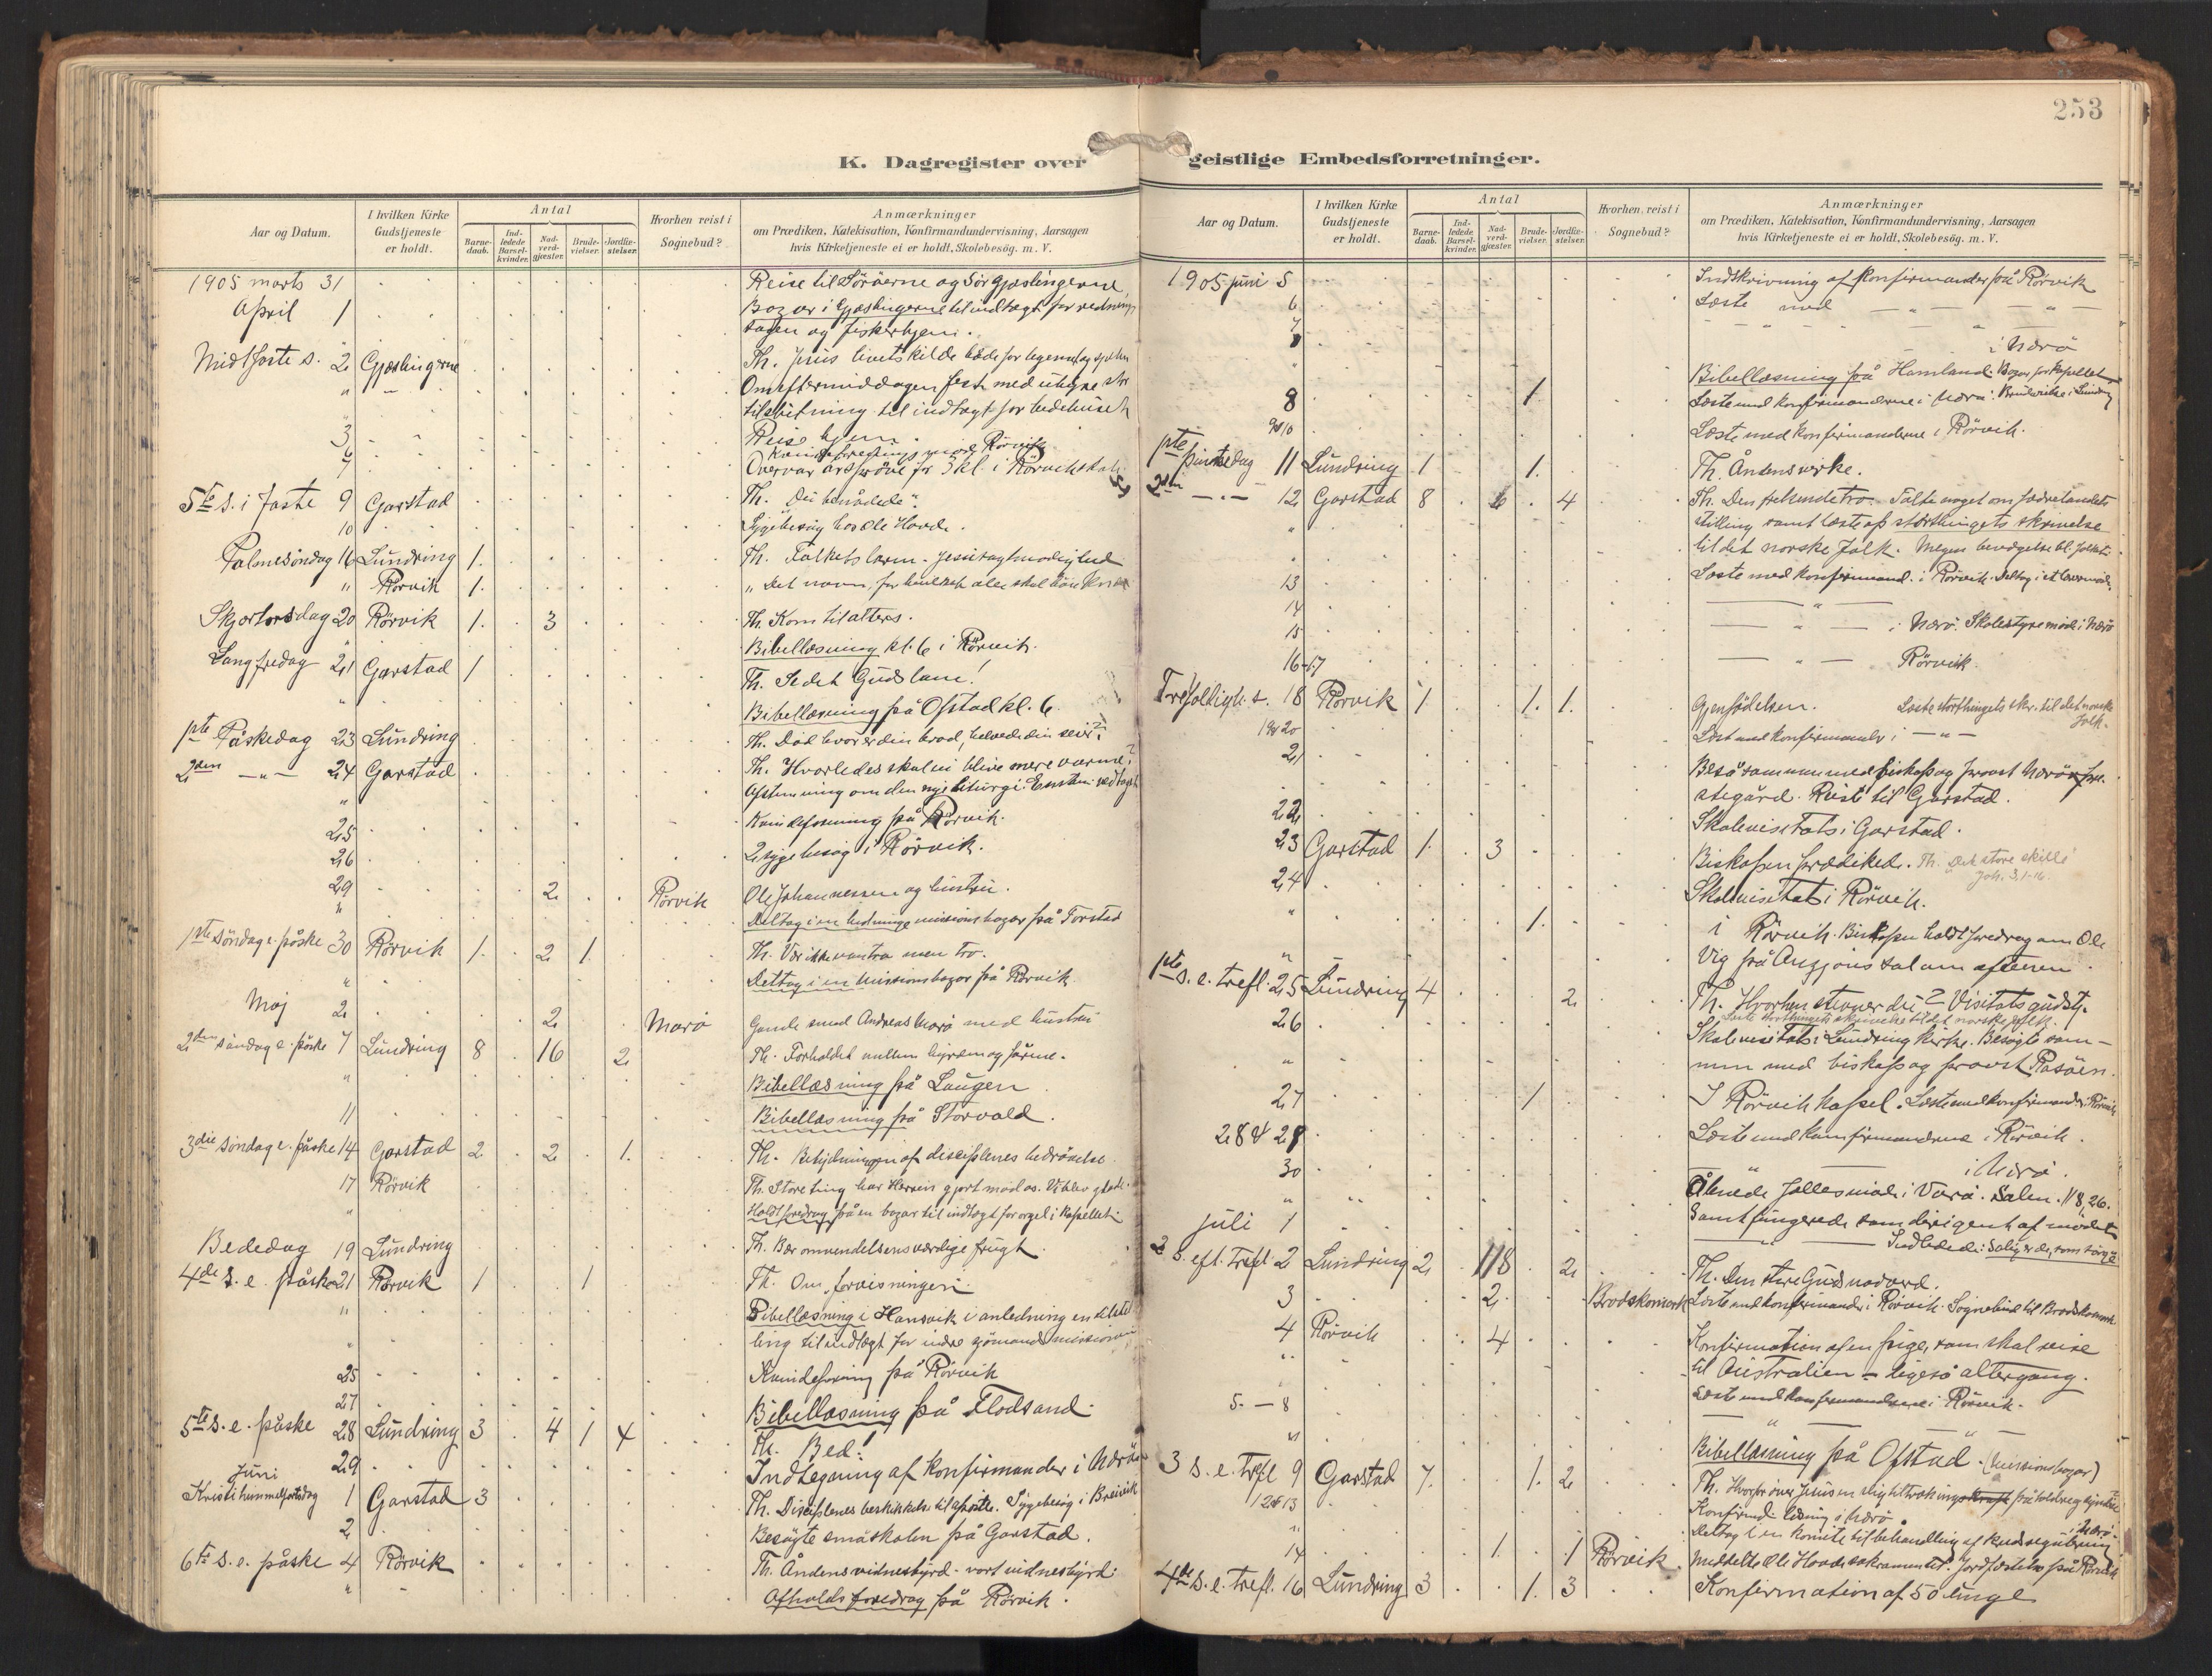 253
K. Dagregister over geistlige Embedsforretninger.
Aar og Datum.
I hvilken Kirke Gudstjeneste er holdt.
Antal
Barne-daab.
Ind-ledede Barsel-kvinder.
Nad-verd-gjæster.
Brude-vielser.
Jordfæ-stelser.
Hvorhen reist i Sognebud?
Anmærkninger
om Prædiken, Katekisation, Konfirmandundervisning, Aarsagen
hvis Kirketjeneste ei er holdt, Skolebesög. m. V.
1905 marts 31 Reise til Söröerne og Sör Gjæslingerne
April 1 Bazar i Gjæslingerne til indtægt for rednings
sagen og fiskerhjem.
Midtfaste s. 2 Gjæslingerne Th. Jesus livets kilde både for legeme og sjel
" Om eftermiddagen fest med
tilslutning til indtægt for bedehuset
3 Reise hjem.
7 Overvar årspröve for 3 kl. i Rörvik skole
5te s. i faste 9 Garstad Th. Du benådede".
10 Sygebesög hos Ole Havd.
Palmesöndag 16 Lundring 1. Th. Folkets larm - Jesu sagtmodighed
" Rörvik 1. " Det navn, for hvilket alle skal böie knæ
Skjærtorsdag 20 Rörvik 1. 3 Th. Kom til alters.
" Bibellæsning kl. 6 i Rörvik.
Langfredag 21 Garstad 1 Th. Se det Guds lam!
" Bibellæsning på Ofstad kl. 6.
1ste Påskedag 23 Lundring Th. Död hvor er din brod, helvede din seir?
2den -"- 24 Garstad Th. Hvorledes skal vi blive mere varme?
" Afstemning om den nye liturgi. Enstem. vedtaget
25 Kvindeforening på Rörvik.
26 2 sygebesög i Rörvik.
29 2 Rörvik Ole Johannessen og hustru.
" Deltog i en hedningemissionsbazar på Torstad
1ste söndag e. påske 30 Rörvik 1. 2 1. Th. Vær ikke vantro men tro.
" Deltog i en missionsbazar på Rörvik
Maj 2 2 Marö Gamle smed Andreas Marö med hustru
2den söndag e. påske 7 Lundring 8 16 2 Th. Forholdet mellem hyrden og fårene.
" Bibellæsning på Laugen
11 Bibellæsning på Storvold.
3die söndag e. påske 14 Garstad 2 2 1. Th. Betydningen af disciplenes bedrövelse
17 Rörvik Th. Store ting har Herren gjort mod os. Vi blev glade.
" Holdt foredrag på en bazar til indtægt for orgel i kapellet
Bededag 19 Lundring Th. Bær omvendelsens værdige frugt
4de s. e. påske 21 Rörvik 1 1 Th. Om forvisningen.
" Bibellæsning i Hansvik i anledning en
ling til indtægt for indre sjömandsmissionen
25 Kvindeforening på Rörvik
27 Bibellæsning på Flodsand.
5te s. e. påske 28 Lundring 3 4 1 4 Th. Bed!
29 Indtegning af konfirmander i Nærö
Juni
Kristi himmelfartsdag 1 Garstad 3 Th. Disciplenes beskikkelse til apostle. Sygebesög i Breivik
2 Besögte småskolen på Garstad.
6te s. e. påske 4 Rörvik Th. Åndens vidnesbyrd - vort vidnesbyrd.
" Afholdt foredrag på Rörvik.
Aar og Datum.
I hvilken Kirke Gudstjeneste er holdt.
Antal
Barne-daab.
Ind-ledede Barsel-kvinder.
Nad-verd-gjæster.
Brude-vielser.
Jordfæ-stelser.
Hvorhen reist i Sognebud?
Anmærkninger
om Prædiken, Katekisation, Konfirmandundervisning, Aarsagen
hvis Kirketjeneste ei er holdt, Skolebesög. m. V.
1905 juni 5 Indskrivning af konfirmander på Rörvik
6 Læste med — " — " —
7 i Nærö
" Bibellæsning på Hamland. Bazar for kapellet
8 1 Læste med konfirmanderne i Nærö. Brudevielse i Lundring
9 & 10 Læste med konfirmanderne i Rörvik.
1ste pinsedag 11 Lundring 1 1. Th. Åndens virke.
2den -"- 12 Garstad 8 6 4 Th. Den frelsende tro. Talte noget om fædrelandets
" stilling samt læste op storthingets skrivelse
" til det norske folk. Megen bevægelse bl. folket.
13 Læste med konfirmand. i Rörvik. Deltog i et
14 — " —
15 — " — i Nærö. Skolestyremöde i Nærö
16-17 — " — Rörvik.
Trefoldigh. s. 18 Rörvik 1 1. 1. Gjenfödelsen. Læste storthingets skr. til det norske folk.
19 & 20 Læst med konfirmander i — " —
21 Beså sammen med biskop og provst Nærö pre-
stegård. Reiste til Garstad.
22 Skolevisitats i Garstad.
23 Garstad 1. 3 Biskopen prædikede. Th. Det store skille
Joh. 3, 1-16.
24 Skolevisitats i Rörvik.
" 1. i Rörvik. Biskopen holdt foredrag om Ole
" Vig på salen om aftenen.
1ste s. e. trefl. 25 Lundring 4 2 Th. Hvorhen stævner du? Visitatsgudstj.
Læste storthingets skrivelse til det norske folk.
26 Skolevisitats i Lundring kirke. Besögte sam-
" men med biskop og provst Rasöen.
27 1 I Rörvik kapel. Læste med konfirmander i Rörvik
28 & 29 Læste med konfirmanderne i Rörvik.
30 — " — i Nærö.
" Åbnede fællesmöde i Varö. Salm. 118, 26.
juli 1 Samt fungerede som dirigent af mödet
— " — Indledede: Salig er de, som sörge
2 s. eft. trefl. 2 Lundring 2 118 2 Th. Den store Guds nadverd.
3 2 Brodskornark Læste med konfirmander i Rörvik. Sognebud til
4 Rörvik 4 Konfirmation af en pige, som skal reise
" til Australien - ligeså altergang.
5. — 8 Læste med konfirmanderne i Rörvik.
" Bibellæsning på Ofstad. (missionsbazar)
3 s. e. trefl 9 Garstad 7. 1. 2 Th. Hvorfor över Jesus en slig tiltrækning på toldere og syndere?
12 & 13 Konfirmand læsning i Nærö
" Deltog i en komite til behandling af
14 1. 1 Rörvik Meddelte Ole Havd sakramentet. Jordfæstelse på Rörvik
4de s. e. trefl. 16 Lundring 3 1. 3 Konfirmation af 50 unge